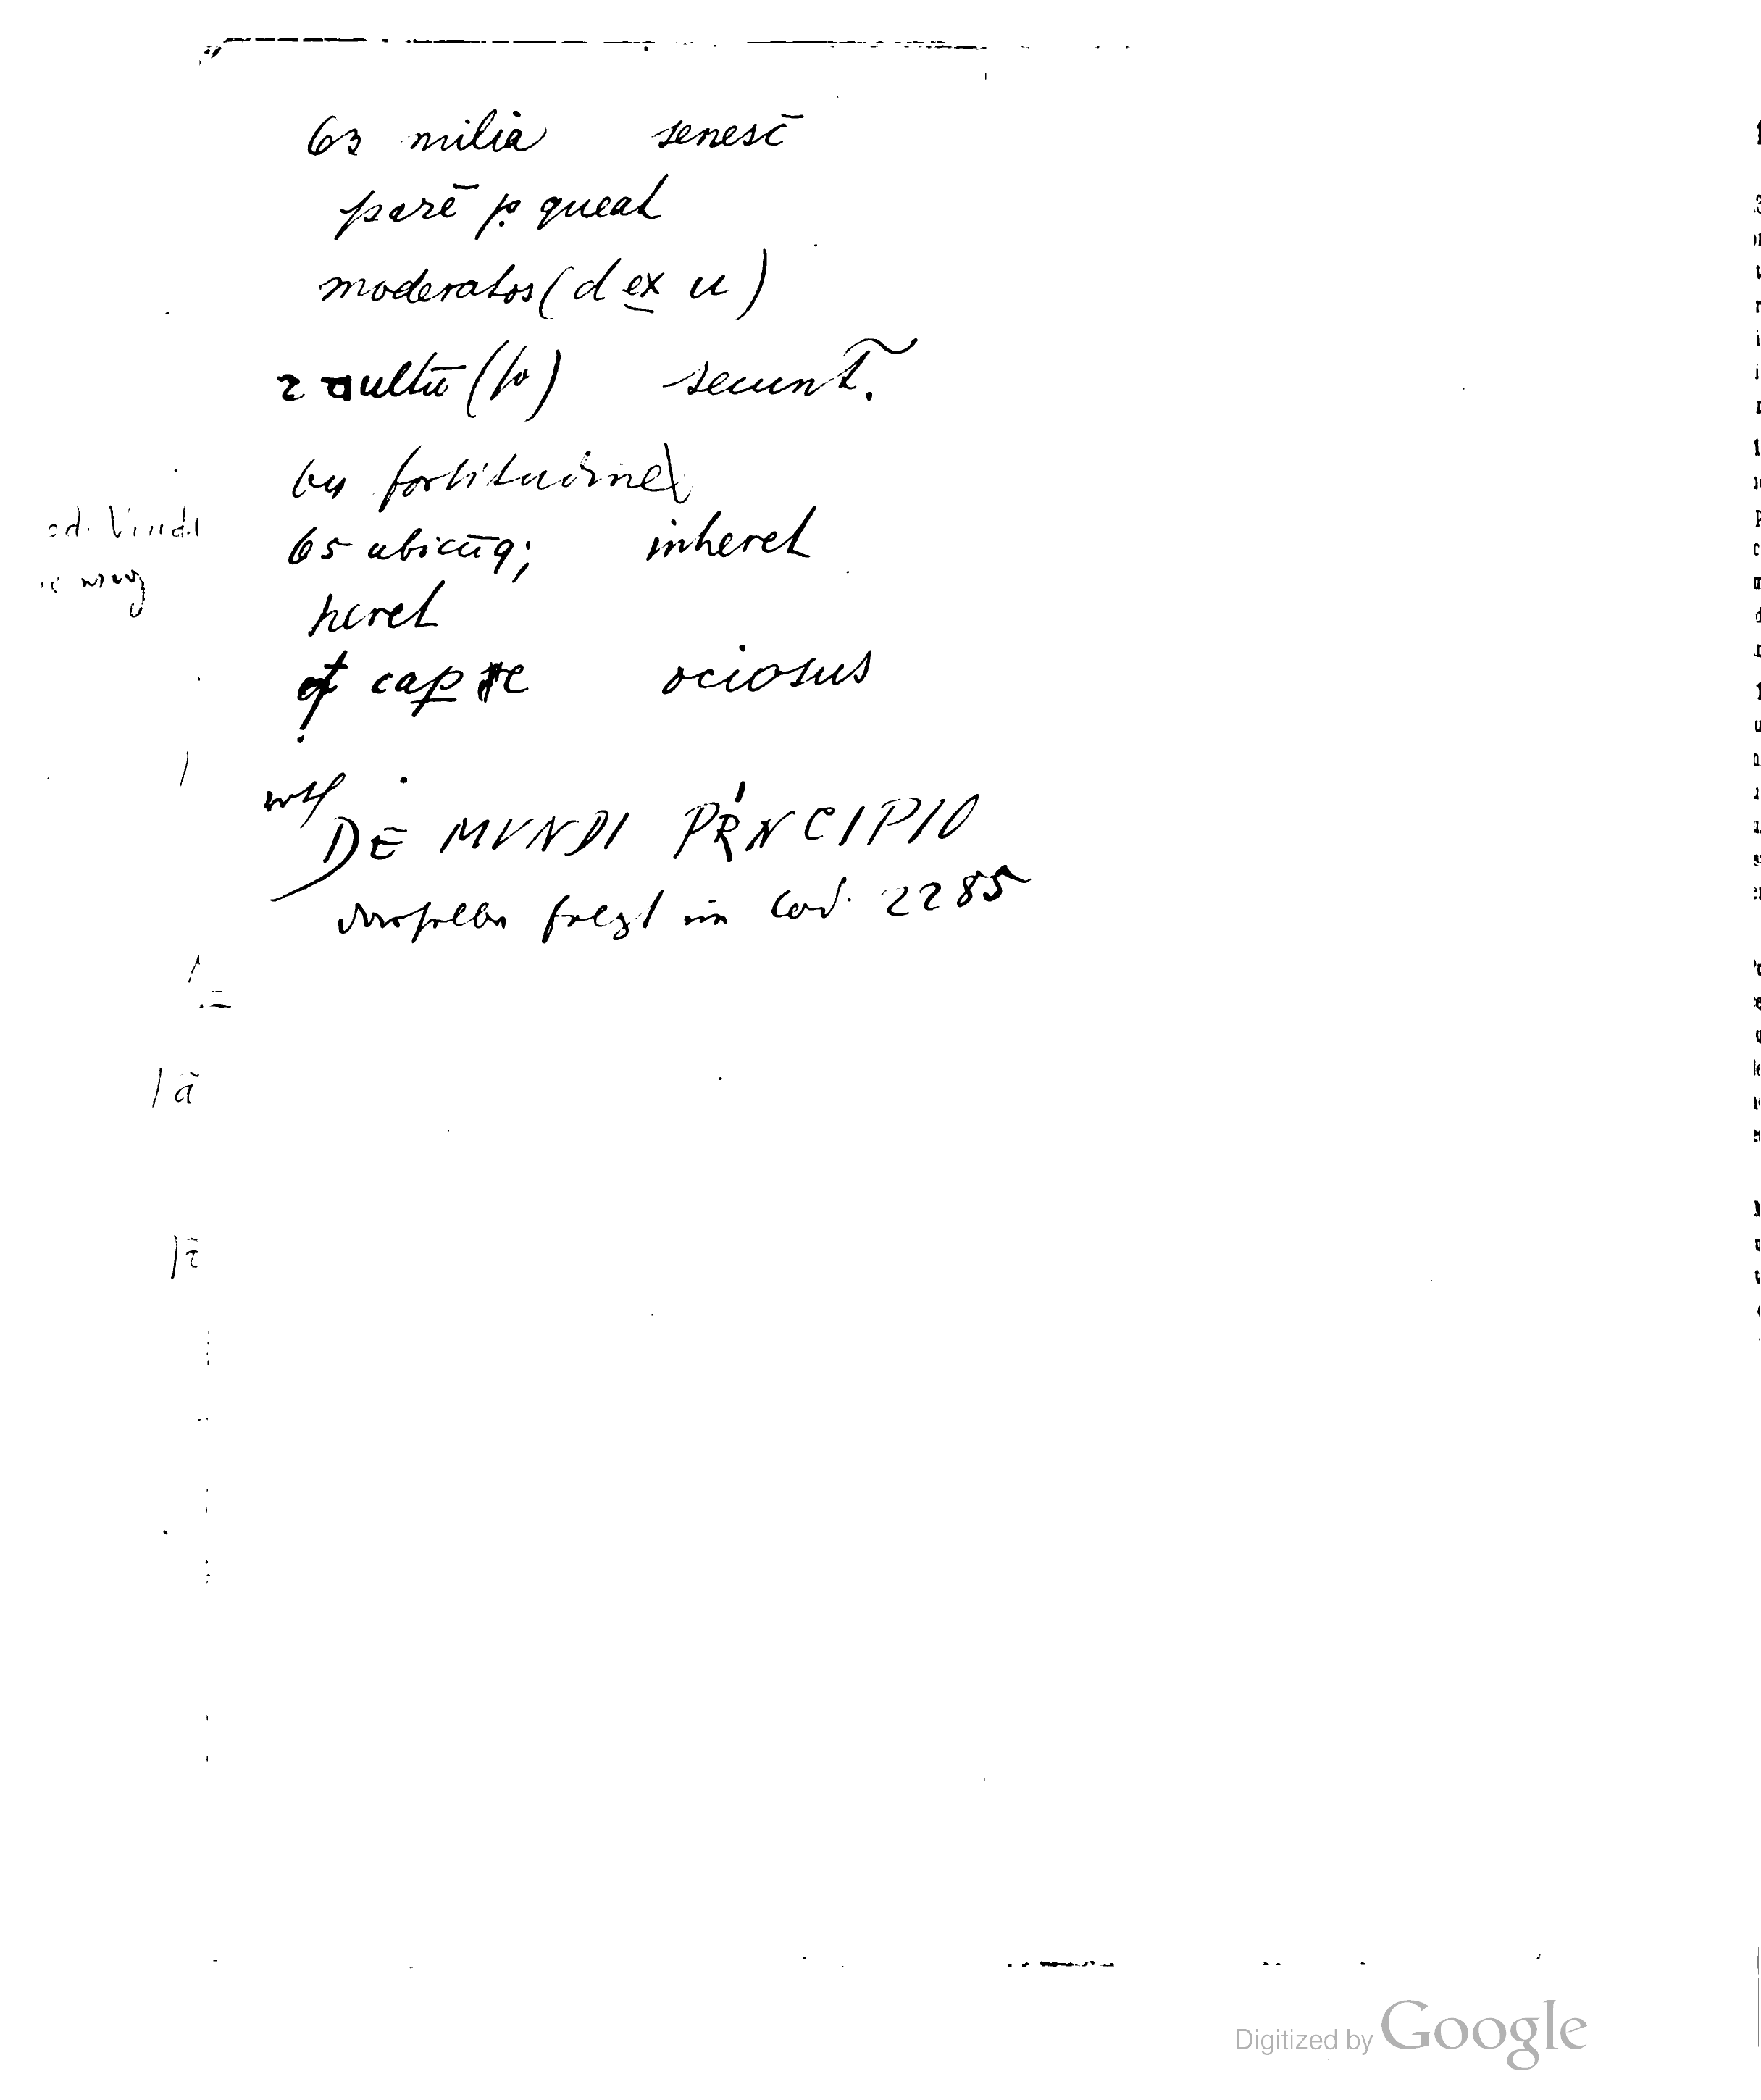 63 milia senesc̄
parē p. queat
moderatos (d ex u)
vultū (to) secunt̄.
64 fortitudine
65 ubicūq; inheret
heret
cap̱te ociosus
DE MVNDI PRNCIPIO
fregt in Cod. 2285
od. Vind.
ā
Digitized by Google